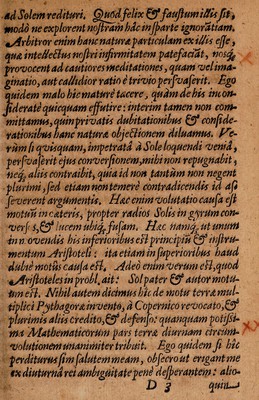 ad Solem redituri. Quod felix & faustum illis sit,
modò ne explorent nostram hâc in parte ignoratiam.
Arbitror enim hanc naturæ particulam ex illis esse,
quæ intellectus nostri infirmitatem patefaciāt, nosq́;
provocent ad cautiores meditationes, quam vel ima-
ginatio, aut callidior ratio è trivio persvaserit. Ego
quidem malo hìc maturè tacere, quàm de his incon-
sideratè quicquam effutire: interim tamen non com-
mittamus, quin privatis dubitationibus & conside-
rationibus hanc naturæ objectionem deluamus. Ve-
rùm si quisquam, impetratâ à Sole loquendi veniâ,
persvaserit ejus conversionem, mihi non repugnabit,
neq́; aliis contraibit, quia id non tantùm non negent
plurimi, sed etiam non temerè contradicendis id as-
severent argumentis. Hæc enim volutatio causa est
motuū in cæteris, propter radios Solis in gyrum con-
versos, & lucem ubiq́; fusam. Hæc namq́; ut unum
in novendis his inferioribus est principiū & instru-
mentum Aristoteli: ita etiam in superioribus haud
dubiè motûs causa est. Adeò enim verum est, quod
Aristoteles in probl. ait: Sol pater & autor motu-
um est. Nihil autem dicimus hîc de motu terræ mul-
tiplici Pythagoræ invento, à Copernico revocato, &
plurimis aliis credito, & defenso: quanquam potissi-
ma Mathematicorum pars terræ diurnam circum-
volutionem unanimiter tribuit. Ego quidem si hîc
perditurus sim salutem meam, obsecro ut erigant me
ex diuturna rei ambiguitate penè desperantem: alio-
D 3 quin